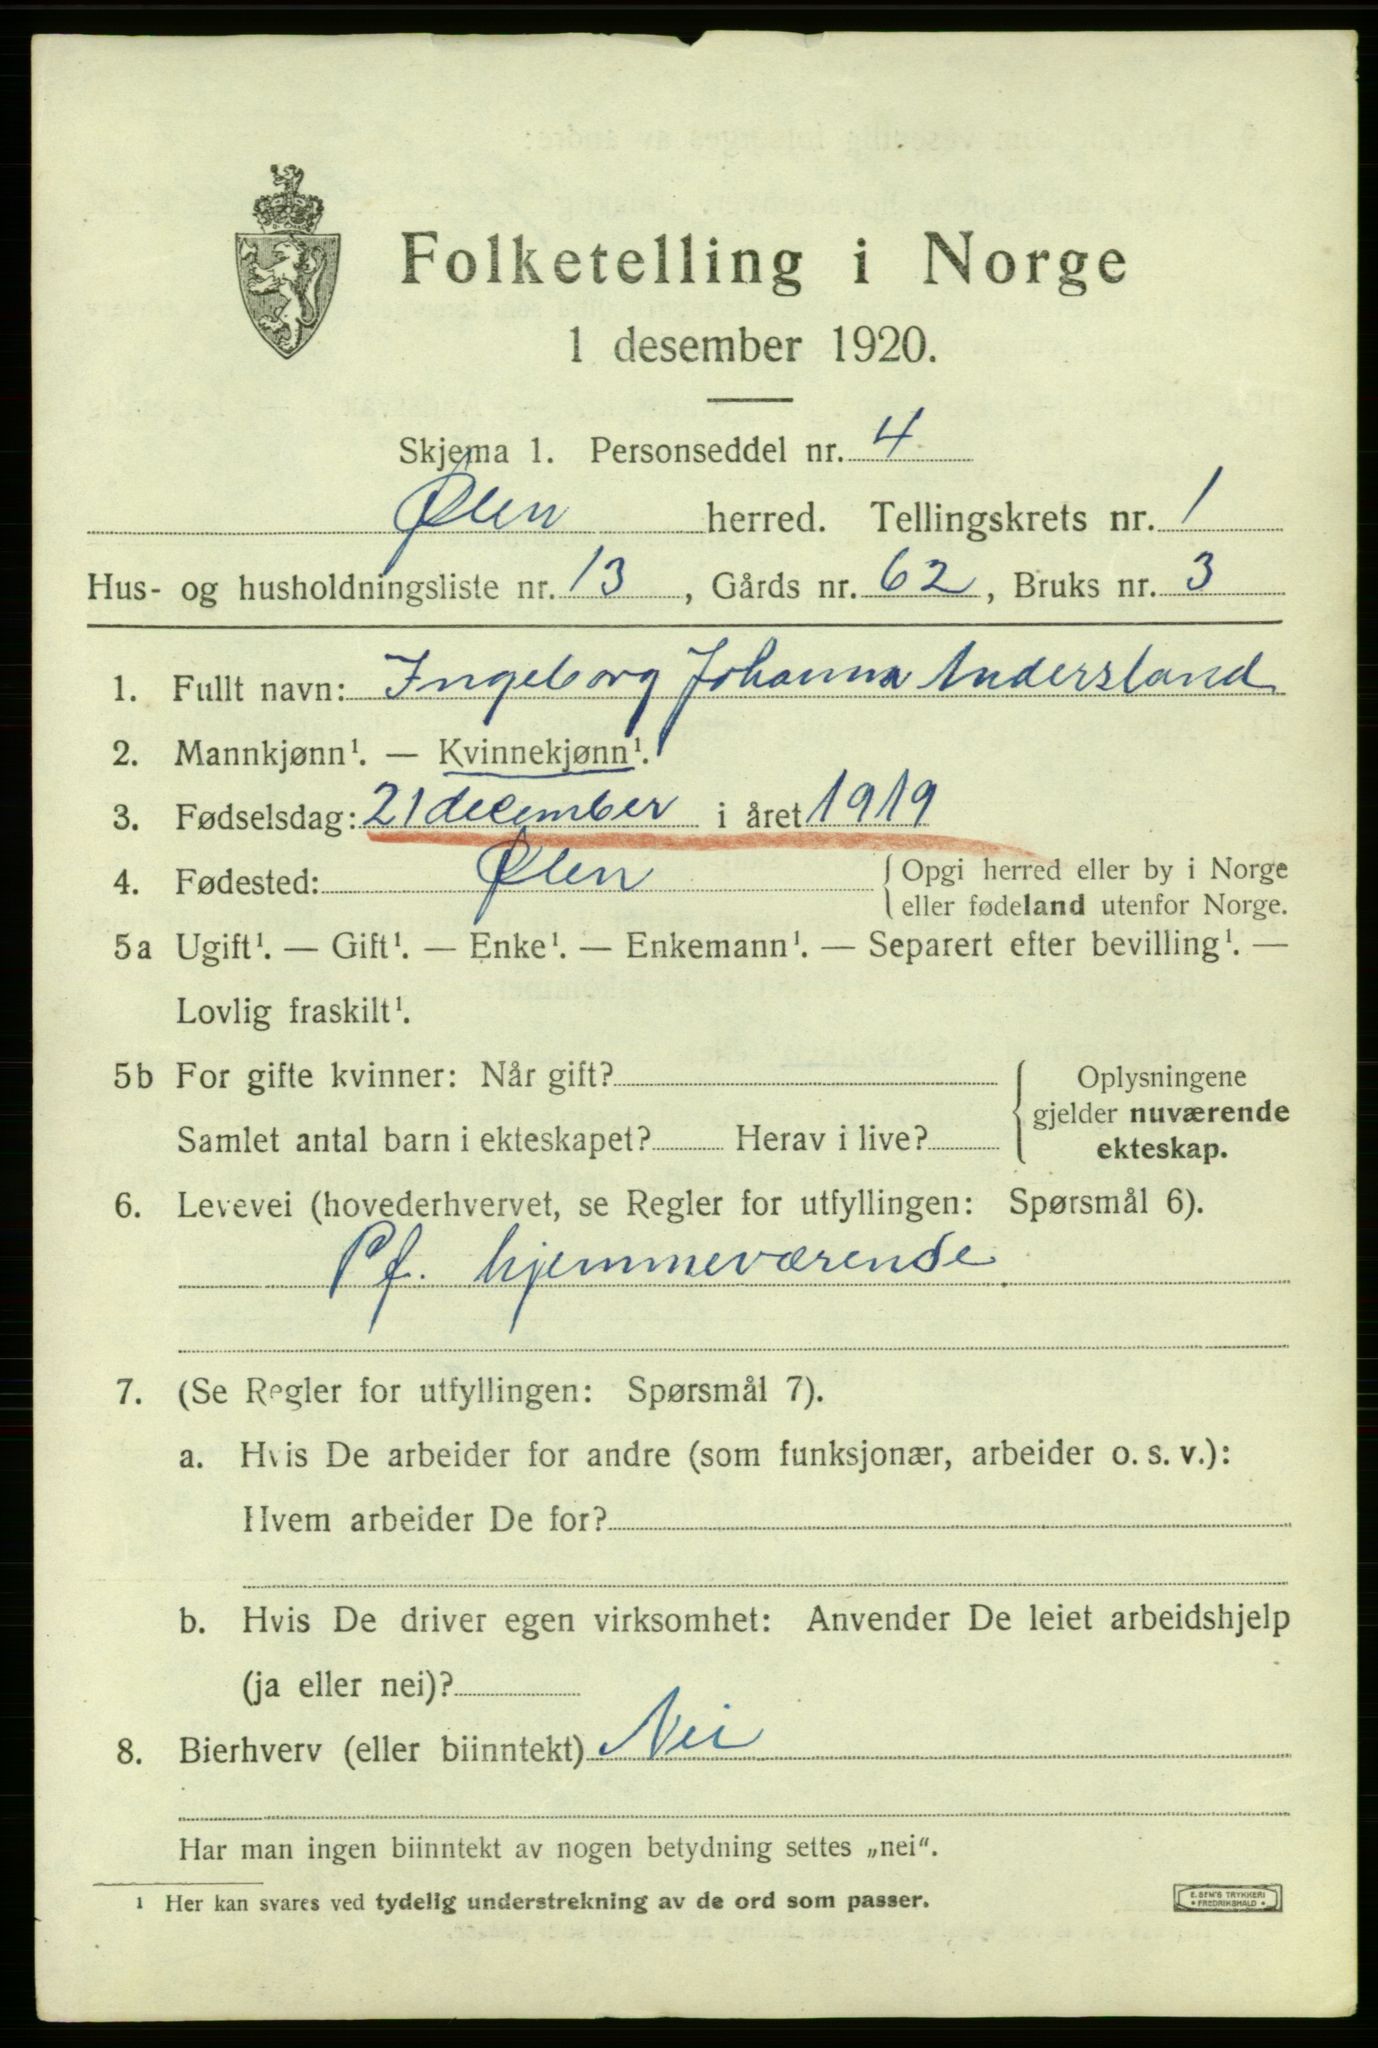 Folketelling i Norge
1 desember 1920.
Skjema 1. Personseddel nr. 4
Ølen herred. Tellingskrets nr. 1
Hus- og husholdningsliste nr. 13, Gårds nr. 62, Bruks nr. 3
1. Fullt navn: Ingeborg Johanna Andersland
2. Mannkjønn¹. — Kvinnekjønn¹.
3. Fødselsdag: 21 december i året 1919
4. Fødested: Ølen {Opgi herred eller by i Norge
eller fødeland utenfor Norge.
5a Ugift¹. — Gift¹. — Enke¹. — Enkemann¹. — Separert efter bevilling¹. —
Lovlig fraskilt¹.
5b For gifte kvinner: Når gift? Oplysningene
gjelder nuværende
Samlet antal barn i ekteskapet? Herav i live? ekteskap.
6. Levevei (hovederhvervet, se Regler for utfyllingen: Spørsmål 6).
Pf. hjemmeværende
7. (Se Regler for utfyllingen: Spørsmål 7).
a. Hvis De arbeider for andre (som funksjonær, arbeider o. s. v.):
Hvem arbeider De for?
b. Hvis De driver egen virksomhet: Anvender De leiet arbeidshjelp
(ja eller nei)?
8. Bierhverv (eller biinntekt) Nei
Har man ingen biinntekt av nogen betydning settes „nei“.
¹ Her kan svares ved tydelig understrekning av de ord som passer.
E. SEM'S TRYKKERI
• FREDRIKSHALD •